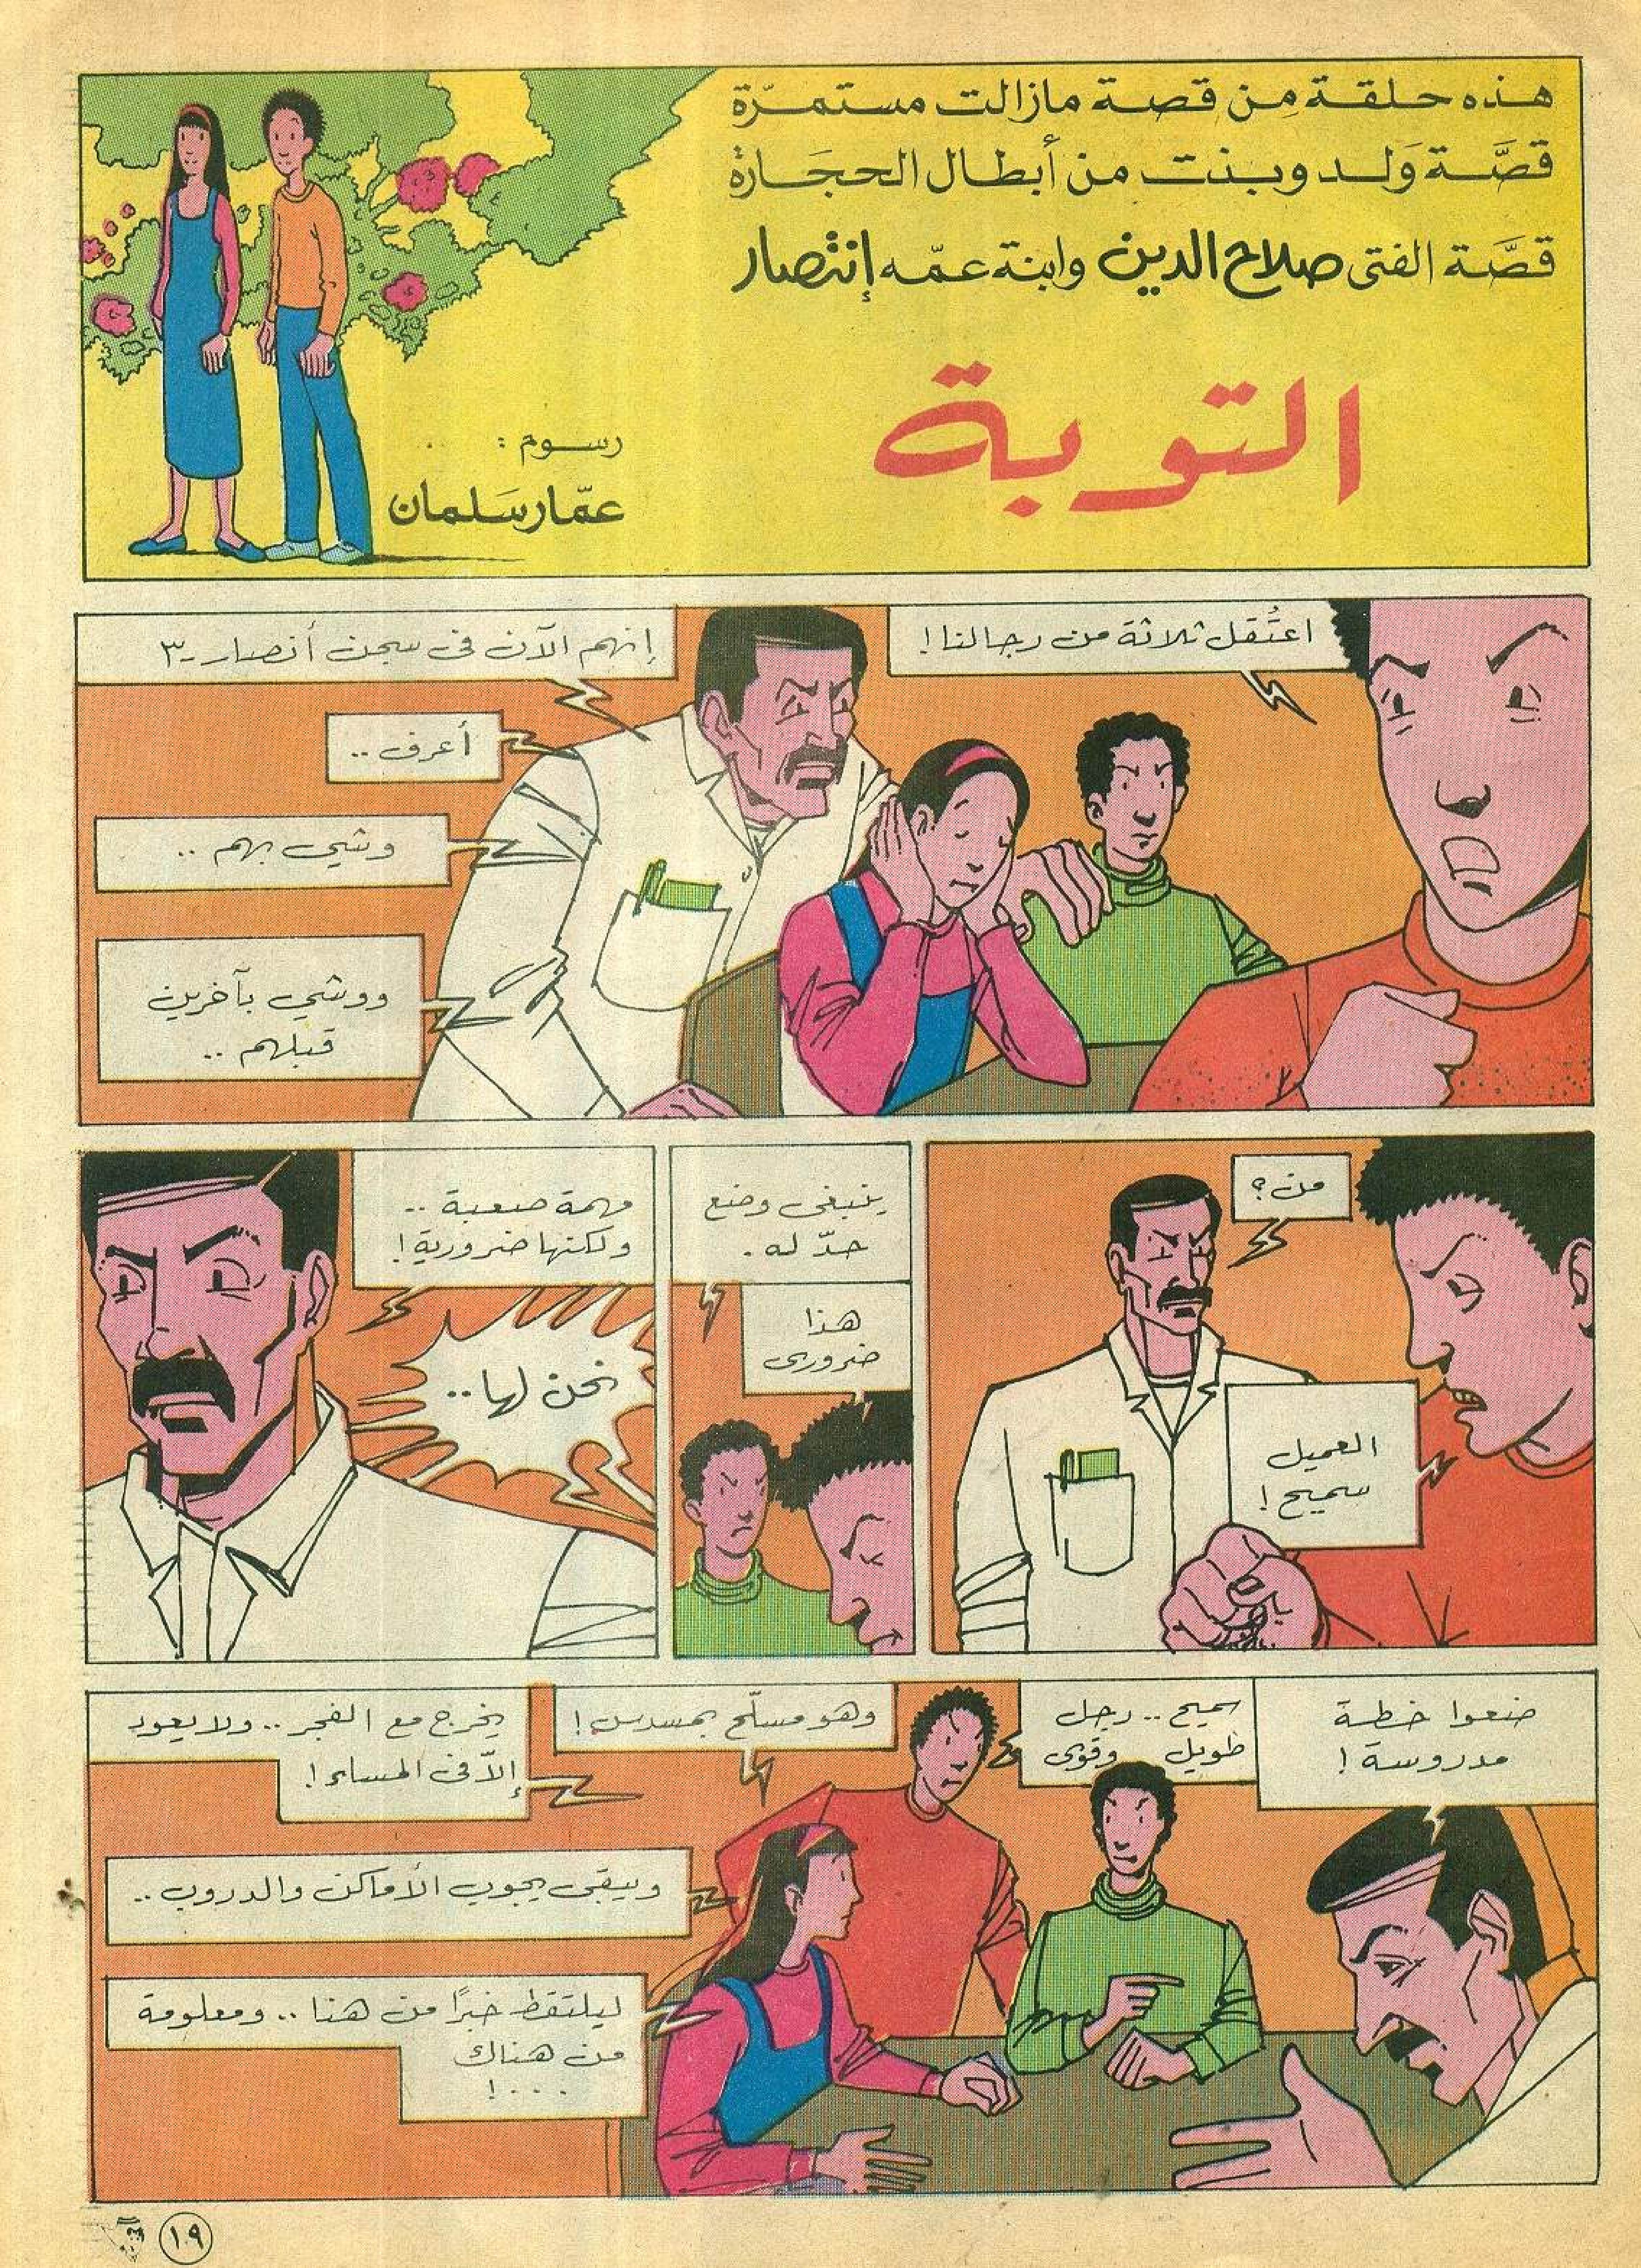 هذه حلقة مِن قصة مازالت مستمرّة
قصَّة وَلد وبنت من أبطال الحجَارة
قصَّة الفتى صلاح الدين وابنة عمّه إنتصار
التوبة
رسوم :
عمّار سَلمان
اعتُقل ثلاثة من رجالنا !
إنهم الآن في سجن أنصار-٣
أعرف ..
وشي بهم ..
ووشي بآخرين
قبلهم ..
من ؟
العميل
سميح !
ينبغي وضع
حدّ له .
هذا
ضروري
مهمة صعبة ..
ولكنها ضرورية !
نحن لها ..
ضعوا خطة
مدروسة !
سميح .. رجل
طويل وقوي
وهو مسلّح بمسدس !
يخرج مع الفجر .. ولا يعود
إلاّ في المساء !
ويبقى يجوب الأماكن والدروب ..
ليلتقط خبرًا من هنا .. ومعلومة
من هناك
... !
١٩